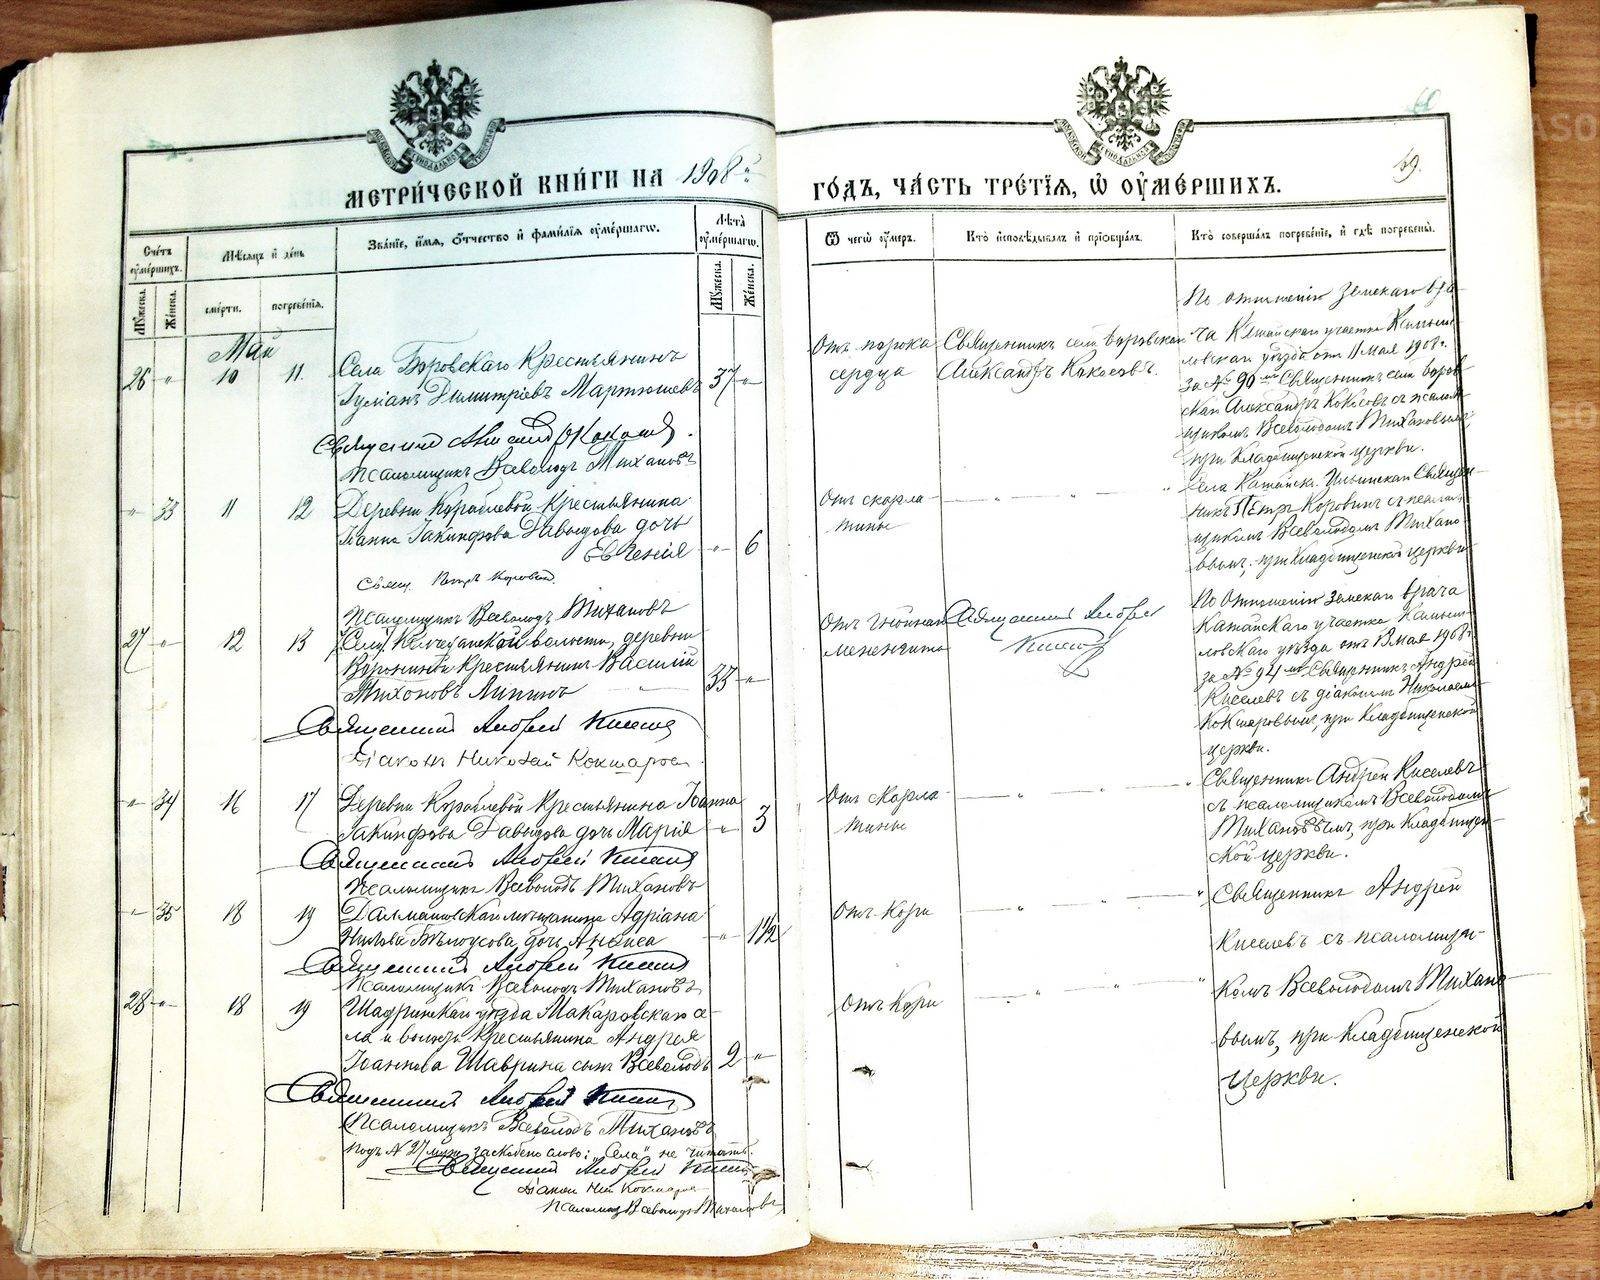 МЕТРИ́ЧЕСКОЙ КНИ́ГИ НА 1908 й
ГО́ДЪ, ЧА́СТЬ ТРЕ́ТІЯ, Ѽ ОУ҆МЕ́РШИХЪ.
59.
60
Сче́тъ оу҆ме́ршихъ.
Мꙋ́жеска.
Же́нска.
Мѣ́сяцъ и҆ де́нь
сме́рти.
погребе́нія.
Зва́ніе, и҆́мя, ѻ҆́тчество и҆ фами́лія оу҆ме́ршагѡ.
Лѣ́та оу҆ме́ршагѡ.
Мꙋ́жеска.
Же́нска.
Ѿ чегѡ̀ оу҆́меръ.
Кто̀ и҆сповѣ́дывалъ и҆ пріобща́лъ.
Кто̀ соверша́лъ погребе́ніе, и҆ гдѣ̀ погребены̀.
Май
26 " 10 11.
Села Боровскаго крестьянинъ
Димитріевъ Мартюшевъ 37 "
Священникъ Александръ Кокосовъ.
Псаломщикъ Всеволодъ Тихановъ
Отъ порока
сердца
Священникъ села Боровскаго
Александръ Кокосовъ.
По отношенію Земскаго вра-
ча Катайскаго участка Камыш-
ловскаго уѣзда отъ 11 Мая 1908 г.
за № 90 мъ Священникъ села Боров-
скаго Александръ Кокосовъ съ псалом-
щикомъ Всеволодомъ Тихановымъ,
при Кладбищенской церкви.
" 33 11 12
Деревни Кораблевой крестьянина
Іоанна Іакинфова Давыдова дочь
Евгенія " 6
Свящ. Петръ Коровинъ.
Псаломщикъ Всеволодъ Тихановъ
Отъ скарла-
тины
Села Катайск. Ильинскаго Священ-
никъ Петръ Коровинъ съ псалом-
щикомъ Всеволодомъ Тихано-
вымъ, при Кладбищенской церкви
27 " 12 13
(Села) волости, деревни
крестьянинъ Василій
Тихоновъ Липинъ 33 "
Священникъ Андрей Киселевъ
Діаконъ Николай Кокшаровъ.
Отъ гнойнаго
менингита
Священникъ Андрей
Киселевъ
По отношенію Земскаго врача
Катайскаго участка Камыш-
ловскаго уѣзда отъ 13 мая 1908 г.
за № 94 мъ Священникъ Андрей
Киселевъ съ діакономъ Николаемъ
Кокшаровымъ, при Кладбищенской
церкви.
" 34 16 17
Деревни Кораблевой крестьянина Іоанна
Іакинфова Давыдова дочь Марія " 3
Священникъ Андрей Киселевъ
Псаломщикъ Всеволодъ Тихановъ
Отъ скарла-
тины
Священникъ Андрей Киселевъ
съ псаломщикомъ Всеволодомъ
Тихановымъ, при Кладбищен-
ской церкви.
" 35 18 19
Далматовскаго мѣщанина Адріана
Бѣлоусова дочь Анфиса " 1 1/2
Священникъ Андрей Киселевъ
Псаломщикъ Всеволодъ Тихановъ
Отъ кори
Священникъ Андрей
Киселевъ съ псаломщи-
28 " 18 19
Шадринскаго уѣзда Макаровскаго се-
ла и волости крестьянина Андрея
Іоаннова Шаврина сынъ Всеволодъ 2 "
Священникъ Андрей Киселевъ
Псаломщикъ Всеволодъ Тихановъ
Отъ кори
комъ Всеволодомъ Тихано-
вымъ, при Кладбищенской
церкви.
Подъ № 27 муж. заскоблено слово: "Села" не читать.
Священникъ Андрей Киселевъ
Діаконъ Ник. Кокшаровъ
Псаломщ. Всеволодъ Тихановъ